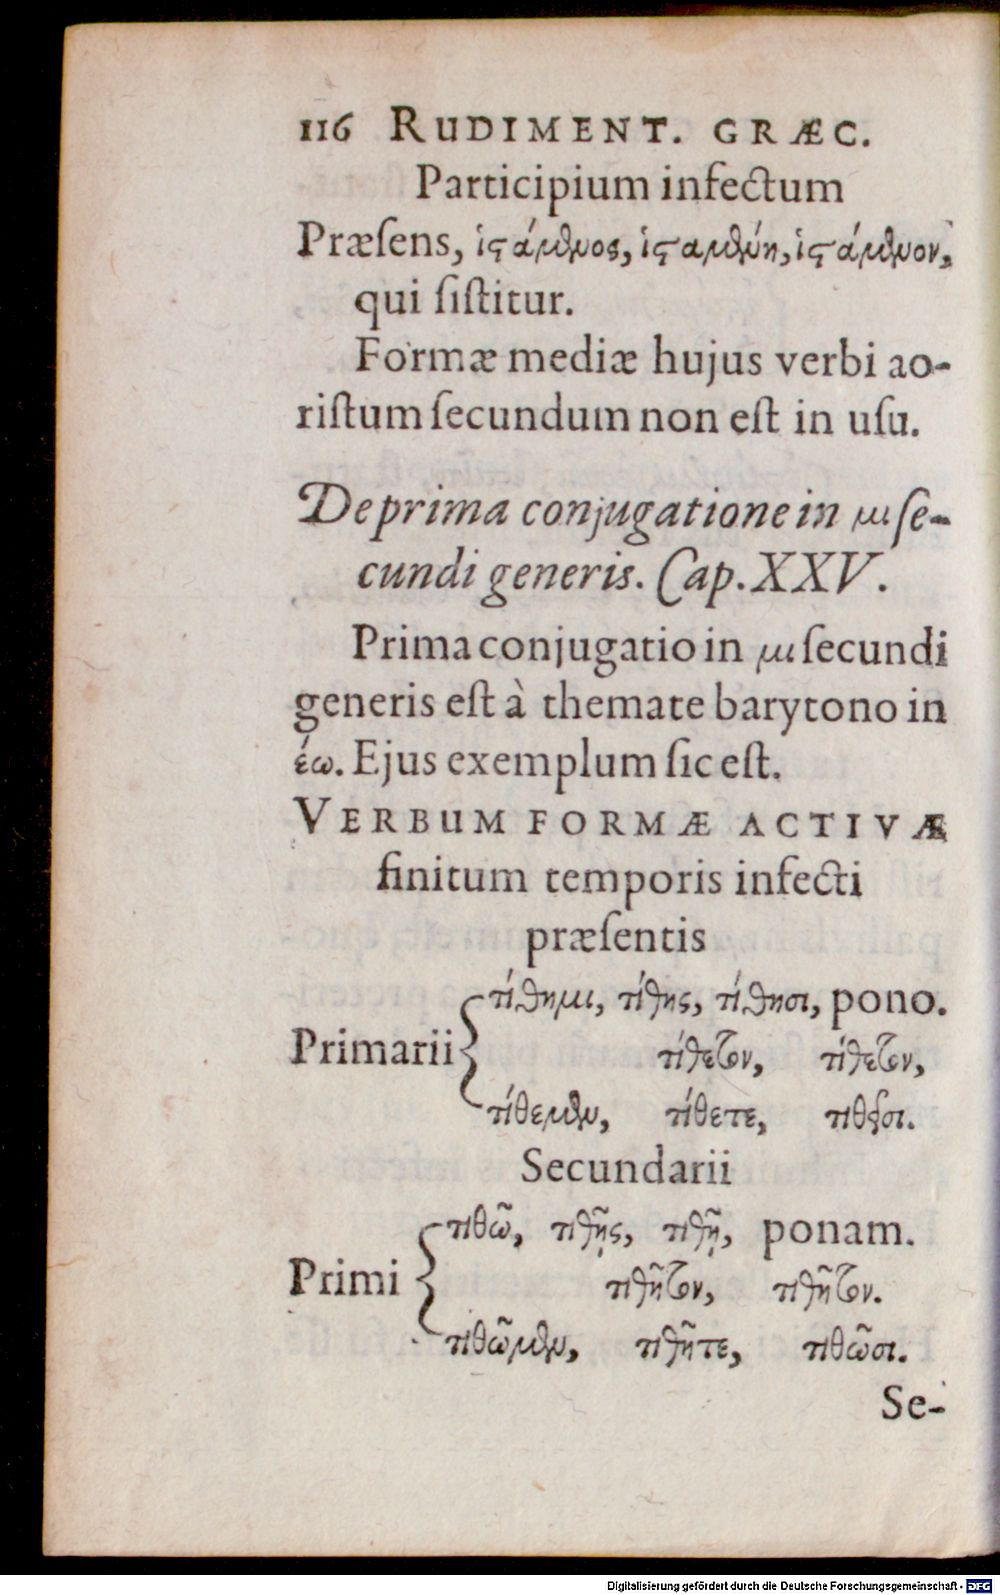 116 RUDIMENT. GRÆC.
Participium infectum
Præſens, ἱϛάμενος, ἱϛαμένη, ἱϛάμενον,
qui ſiſtitur.
Formæ mediæ hujus verbi ao-
riſtum ſecundum non eſt in uſu.
De prima conjugatione in μι ſe-
cundi generis. Cap. XXV.
Prima conjugatio in μι ſecundi
generis eſt à themate barytono in
έω. Ejus exemplum ſic eſt.
VERBUM FORMÆ ACTIVÆ
finitum temporis infecti
præſentis
τίθημι, τίθης, τίθησι, pono.
Primarii τίθετον, τίθετον,
τίθεμεν, τίθετε, τιθεῖσι.
Secundarii
τιθῶ, τιθῇς, τιθῇ, ponam.
Primi τιθῆτον, τιθῆτον.
τιθῶμεν, τιθῆτε, τιθῶσι.
Se-
Digitalisierung gefördert durch die Deutsche Forschungsgemeinschaft - DFG